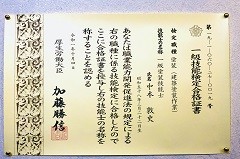 一級技能検定合格証書
検定職種 塗装(建築塗装作業)
技能士の名称 一級塗装技能士
氏名 中本敦史
あなたは職業能力開発促進法の規定による
右の職種に係る技能検定に合格したので
ここに合格証書を授与し右の技能士の名称を
称することを認める
厚生労働大臣
加藤勝信